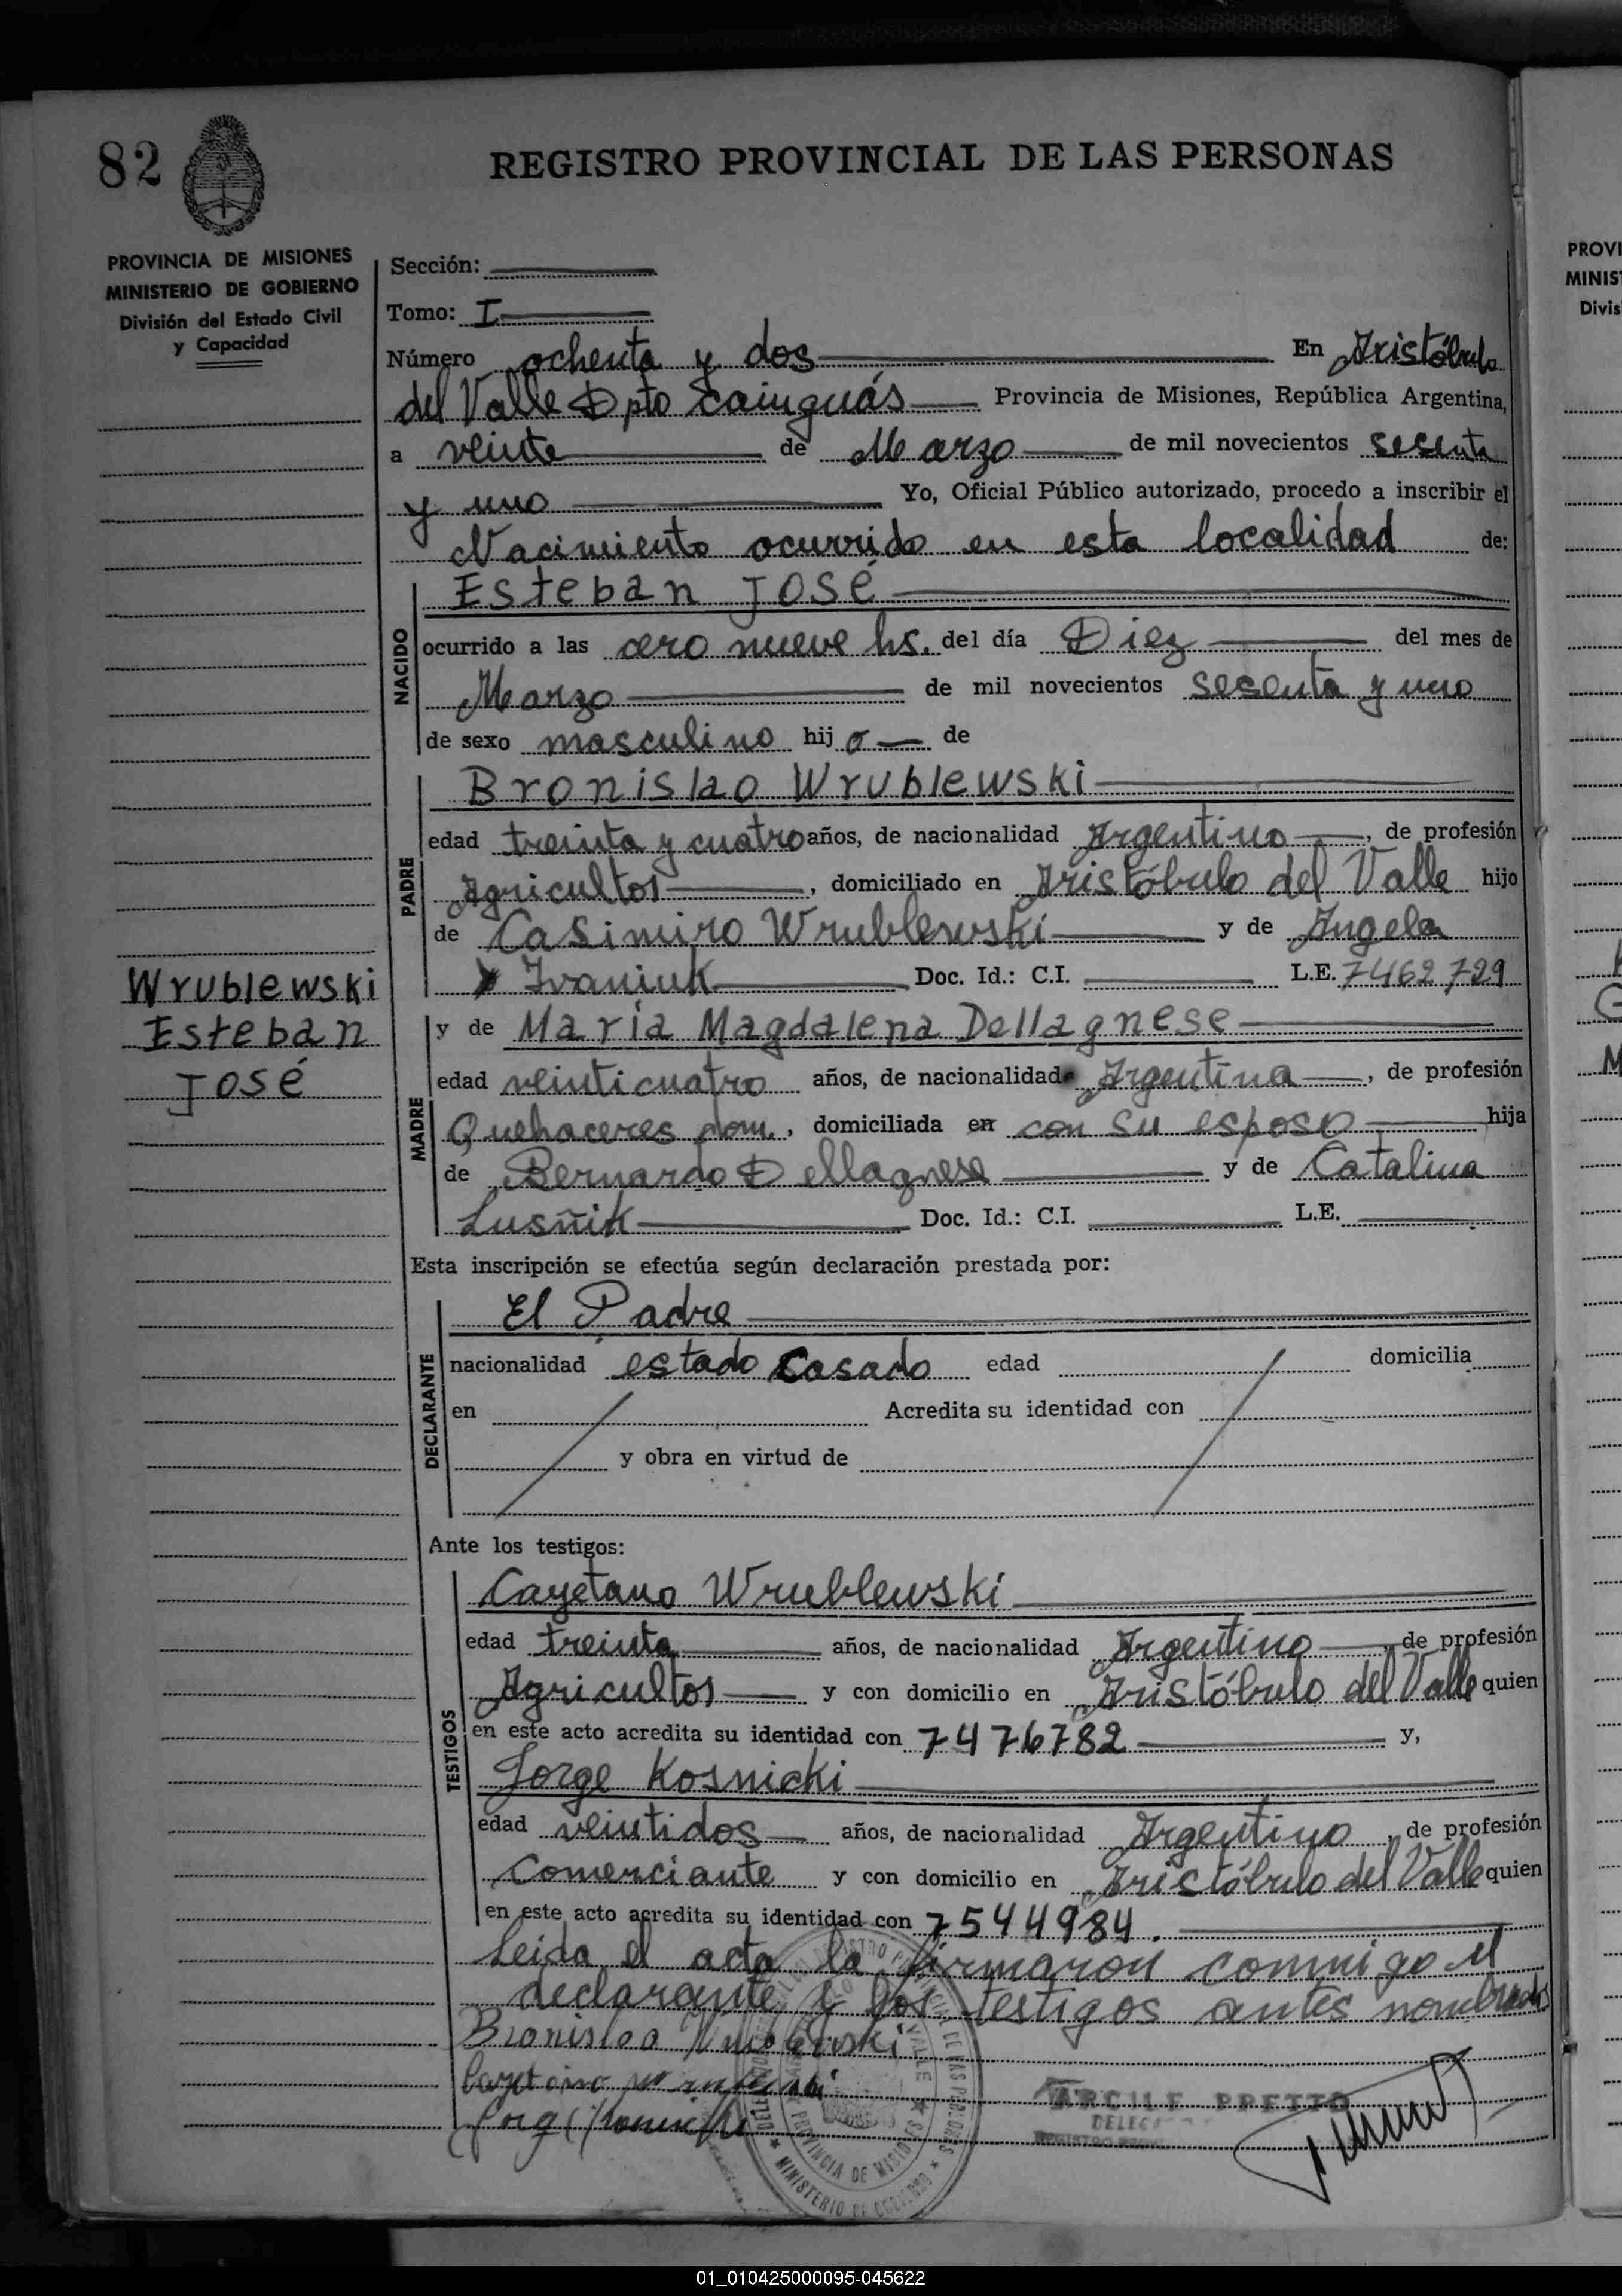 82
REGISTRO PROVINCIAL DE LAS PERSONAS
PROVINCIA DE MISIONES
MINISTERIO DE GOBIERNO
División del Estado Civil
y Capacidad
Wrublewski
Esteban
José
Sección:
Tomo: I
Número ochenta y dos En Aristóbulo
del Valle Dpto Cainguás Provincia de Misiones, República Argentina,
a veinte de Marzo de mil novecientos sesenta
y uno Yo, Oficial Público autorizado, procedo a inscribir el
Nacimiento ocurrido en esta localidad de:
NACIDO
Esteban José
ocurrido a las cero nueve hs. del día Diez del mes de
Marzo de mil novecientos sesenta y uno
de sexo masculino hijo de
PADRE
Bronislao Wrublewski
edad treinta y cuatro años, de nacionalidad Argentino, de profesión
Agricultor, domiciliado en Aristóbulo del Valle hijo
de Casimiro Wrublewski y de Angela
Ivaniuk Doc. Id.: C.I. L.E. 7462729
MADRE
y de María Magdalena Dellagnese
edad veinticuatro años, de nacionalidad Argentina, de profesión
Quehaceres dom., domiciliada en con su esposo hija
de Bernardo Dellagnese y de Catalina
Lusñik Doc. Id.: C.I. L.E.
Esta inscripción se efectúa según declaración prestada por:
DECLARANTE
El Padre
nacionalidad estado casado edad domicilia
en Acredita su identidad con
y obra en virtud de
Ante los testigos:
TESTIGOS
Cayetano Wrublewski
edad treinta años, de nacionalidad Argentino, de profesión
Agricultor y con domicilio en Aristóbulo del Valle quien
en este acto acredita su identidad con 7476782 y,
Jorge Kosnicki
edad veintidos años, de nacionalidad Argentino, de profesión
Comerciante y con domicilio en Aristóbulo del Valle quien
en este acto acredita su identidad con 7544984.
Leida el acta la firmaron conmigo el
declarante y los testigos antes nombrados
Bronislao
ARCILE PRETTO
PROVINCIA DE MISIONES
MINISTERIO DE GOBIERNO
PROVI
MINIS
Divis
01_010425000095-045622